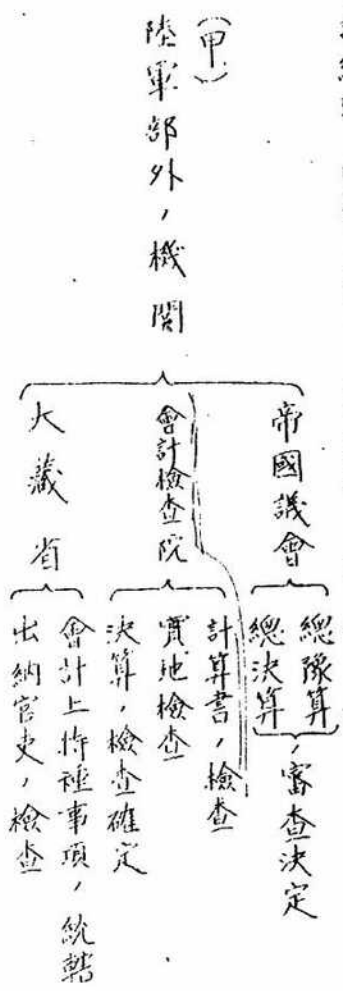 (甲)
陸軍部外ノ機関
帝國議會
總豫算
總決算
ノ審査決定
會計檢査院
計算書ノ檢査
實地檢査
決算ノ檢査確定
大藏省
會計上特種事項ノ統轄
出納官吏ノ檢査